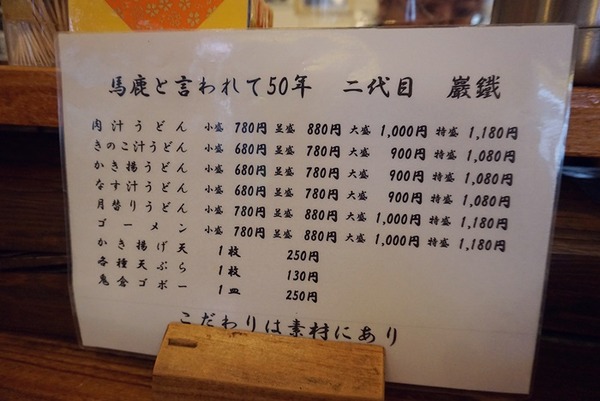 馬鹿と言われて50年 二代目 巖鐵
肉汁うどん 小盛 780円 並盛 880円 大盛 1,000円 特盛 1,180円
きのこ汁うどん 小盛 680円 並盛 780円 大盛 900円 特盛 1,080円
かき揚うどん 小盛 680円 並盛 780円 大盛 900円 特盛 1,080円
なす汁うどん 小盛 680円 並盛 780円 大盛 900円 特盛 1,080円
月替りうどん 小盛 780円 並盛 880円 大盛 1,000円 特盛 1,180円
ゴーメン 小盛 780円 並盛 880円 大盛 1,000円 特盛 1,180円
かき揚げ天 1枚 250円
各種天ぷら 1枚 130円
鬼倉ゴボー 1皿 250円
こだわりは素材にあり